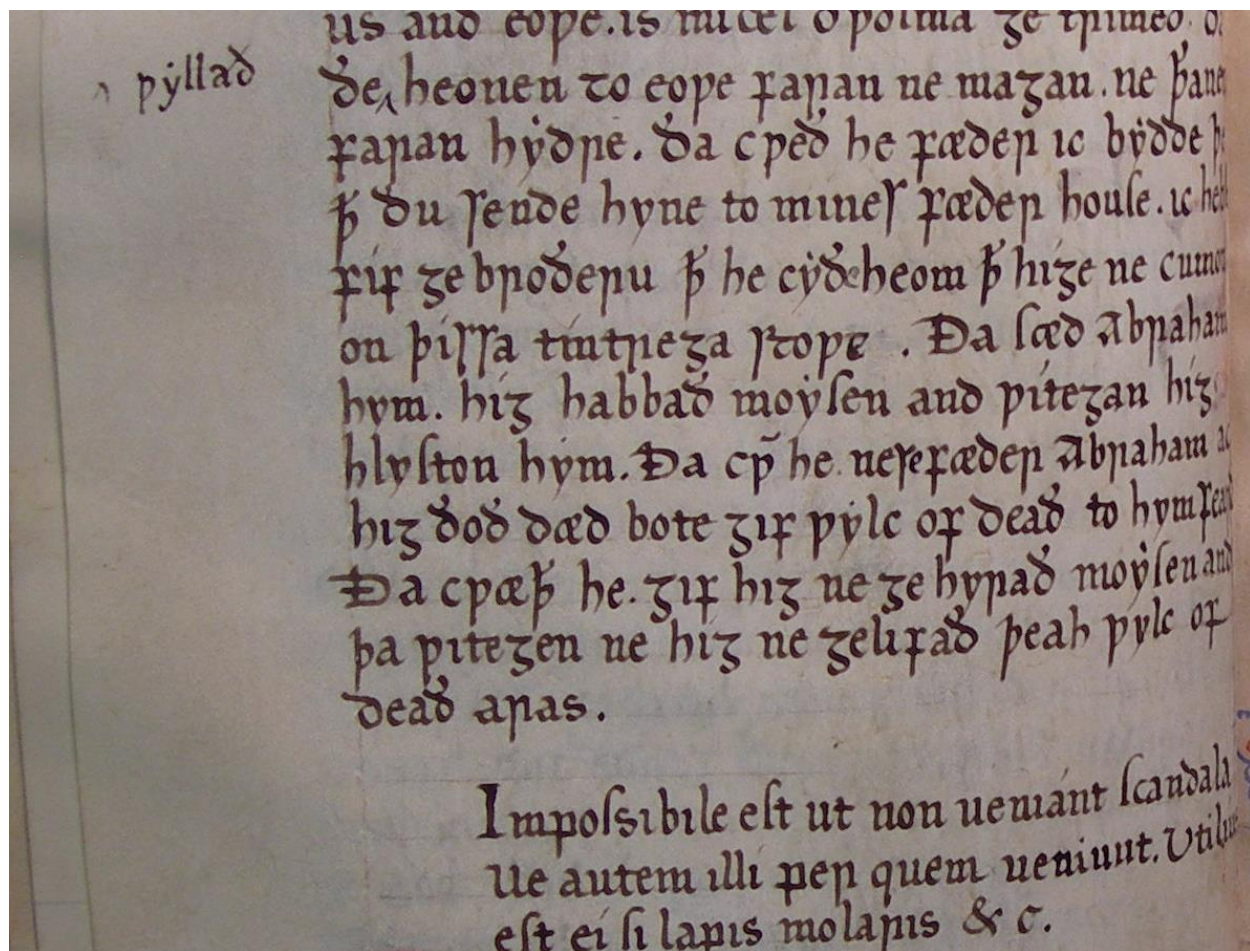 ƿyllað
us and eoƿe. is micel dƿolma ge trimed.
ðe heonen to eoƿe faran ne magan. ne þanen
faran hyðre. Ða cƿeð he fæder ic bydde
ꝥ ðu sende hyne to mines fæder house. ic
fif ge broðeru ꝥ he cyðe heom ꝥ hig ne
on þissa tintrega stoƿe. Ða sæd Abraham
hym. hig habbað moysen and ƿitegan hig
hlyston hym. Ða cƿ̄ he. nese fæder Abraham ac
hig ðoð dæd bote gif ƿylc of deað to hym
Ða cƿæþ he. gif hig ne ge hyrað moysen and
þa ƿitegen ne hig ne gelifað þeah ƿylc of
deað aras.
Impossibile est ut non ueniant scandala
ue autem illi per quem ueniunt. Utilius
est ei si lapis molaris & c.